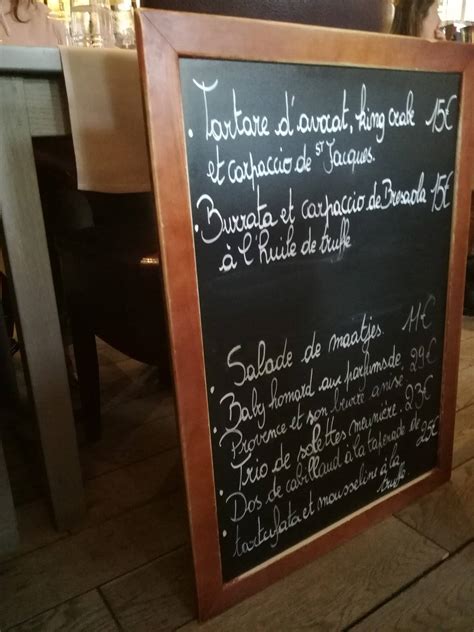 . Tartare d'avocat, king crabe 15€
et carpaccio de St Jacques.
. Burrata et carpaccio de Bresaola 15€
à l'huile de truffe
. Salade de maatjes. 11€
. Baby homard aux parfums de 29€
Provence et son beurre anisé.
. Trio de solettes meunière. 23€
. Dos de cabillaud à la tapenade de 25€
tartufata et mousseline à la
truffe.